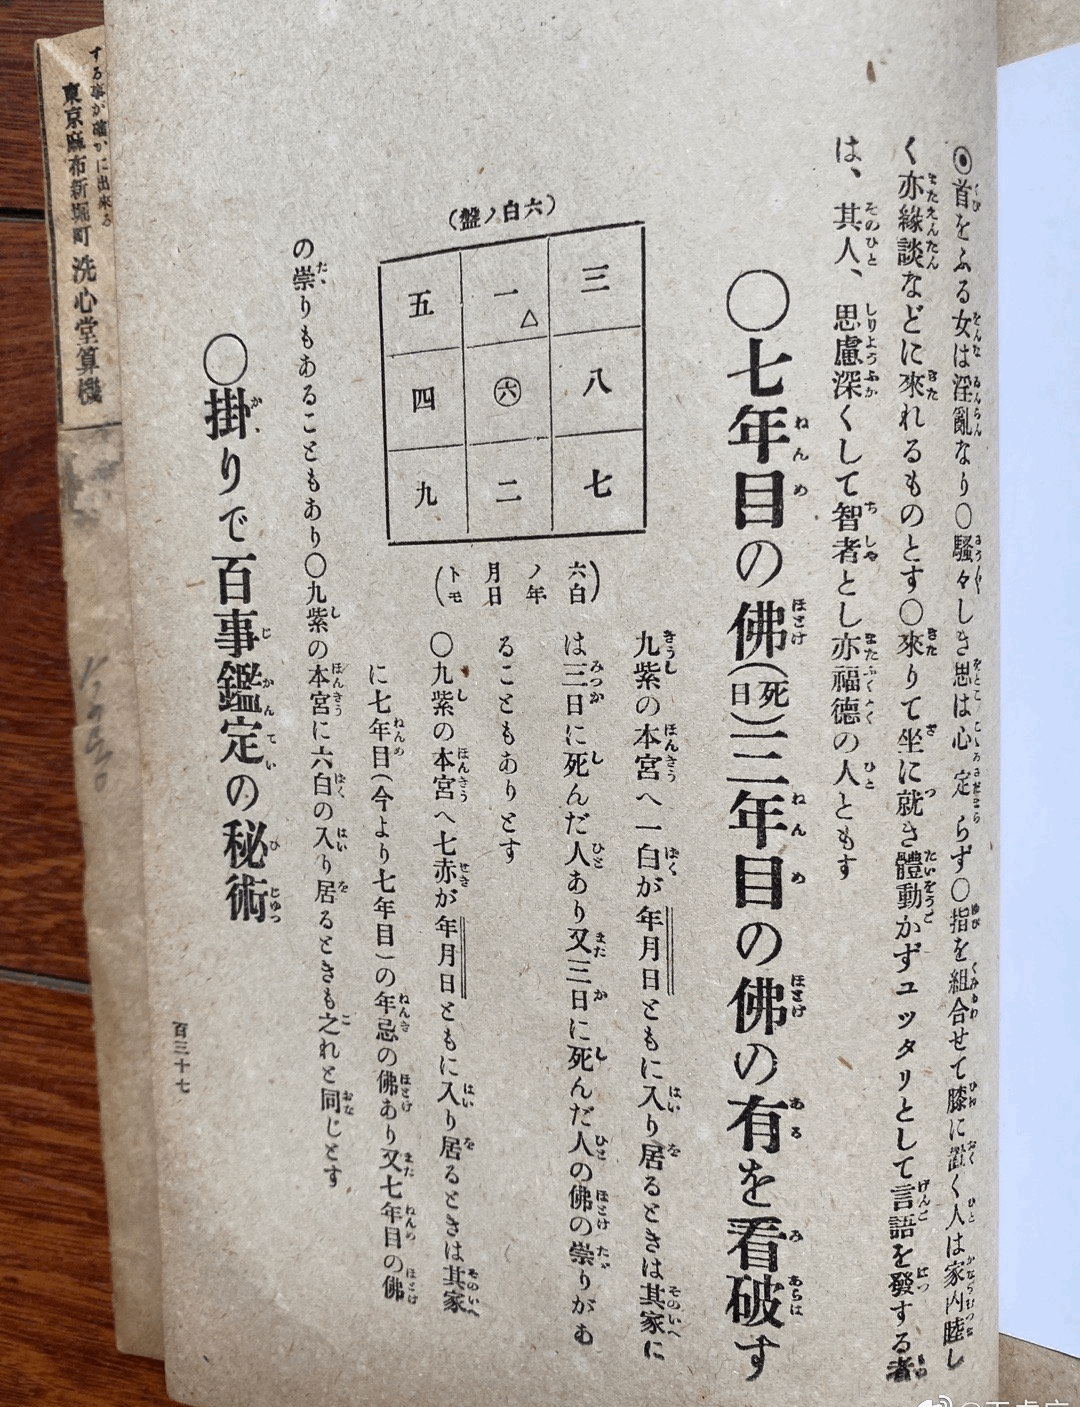 ◉首をふる女は淫亂なり〇騷々しき思は心定らず〇指を組合せて膝に置く人は家内睦し
く亦緣談などに來れるものとす〇來りて坐に就き體動かずユッタリとして言語を發する者
は、其人、思慮深くして智者とし亦福德の人ともす
〇七年目の佛(死日)三年目の佛の有を看破す
(六白ノ盤)
五 一△ 三
四 ㊅ 八
九 二 七
(六白ノ年月日トモ)
九紫の本宮へ一白が年月日ともに入り居るときは其家に
は三日に死んだ人あり又三日に死んだ人の佛の崇りがあ
ることもありとす
〇九紫の本宮へ七赤が年月日ともに入り居るときは其家
に七年目(今より七年目)の年忌の佛あり又七年目の佛
の崇りもあることもあり〇九紫の本宮に六白の入り居るときも之れと同じとす
〇掛りで百事鑑定の秘術
百三十七
する事が確かに出來る
東京麻布新堀町 洗心堂算機